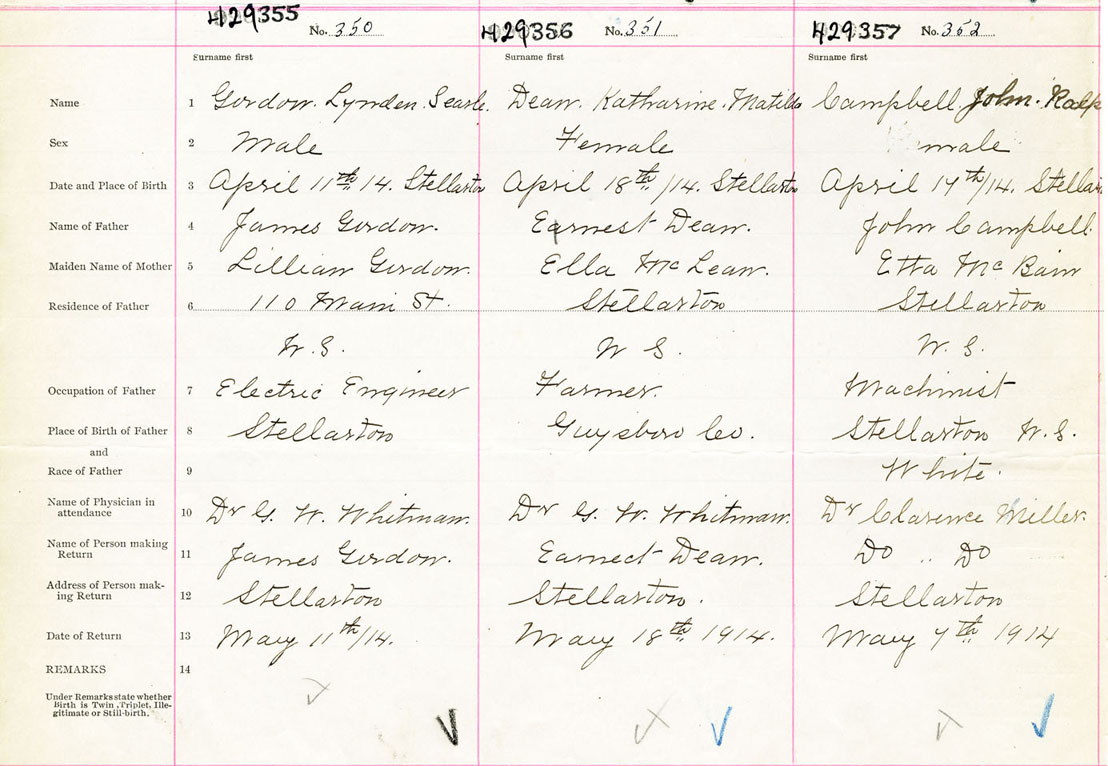 429355 No. 350 429356 No. 351 429357 No. 352
Surname first Surname first Surname first
Name 1 Gordon. Lynden. Searle. Dean. Katharine. Matilda Campbell. John. Ralp
Sex 2 Male Female male
Date and Place of Birth 3 April 11th 14. Stellarton April 18th /14. Stellarton April 17th/14. Stellar
Name of Father 4 James Gordon. Earnest Dean. John Campbell.
Maiden Name of Mother 5 Lillian Gordon. Ella Mc Lean. Etta Mc Bain
Residence of Father 6 110 Main St. Stellarton Stellarton
N. S. N S. N. S.
Occupation of Father 7 Electric Engineer Farmer. Machinist
Place of Birth of Father 8 Stellarton Guysboro Co. Stellarton N. S.
and
Race of Father 9 White.
Name of Physician in
attendance 10 Dr G. W. Whitman. Dr G. W. Whitman. Dr Clarence Miller.
Name of Person making
Return 11 James Gordon. Earnest Dean. Do .. Do
Address of Person mak-
ing Return 12 Stellarton Stellarton. Stellarton
Date of Return 13 May 11th/14. May 18th 1914. May 7th 1914
REMARKS 14
Under Remarks state whether
Birth is Twin, Triplet, Ille-
gitimate or Still-birth.